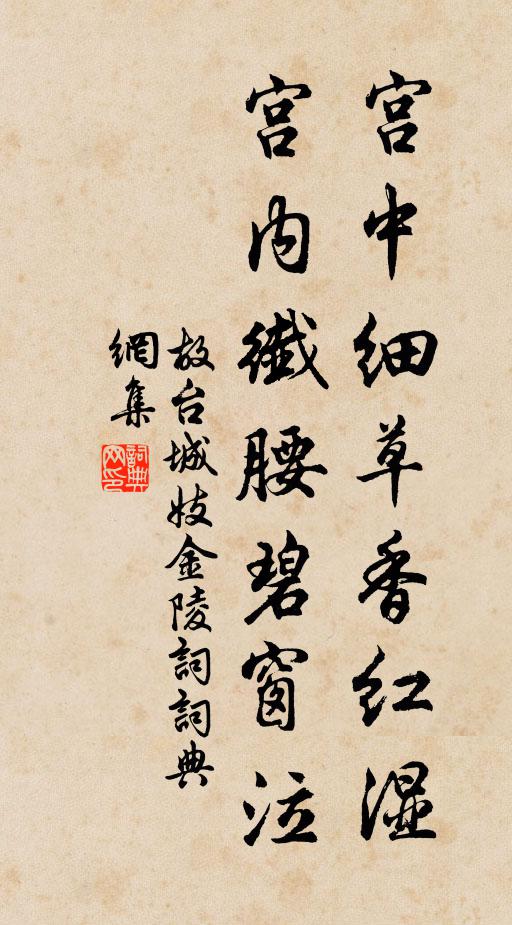 宫中细草香红湿
宫内纖腰碧窗泣
故台城妓金陵詞詞典
網集
詞典
网印